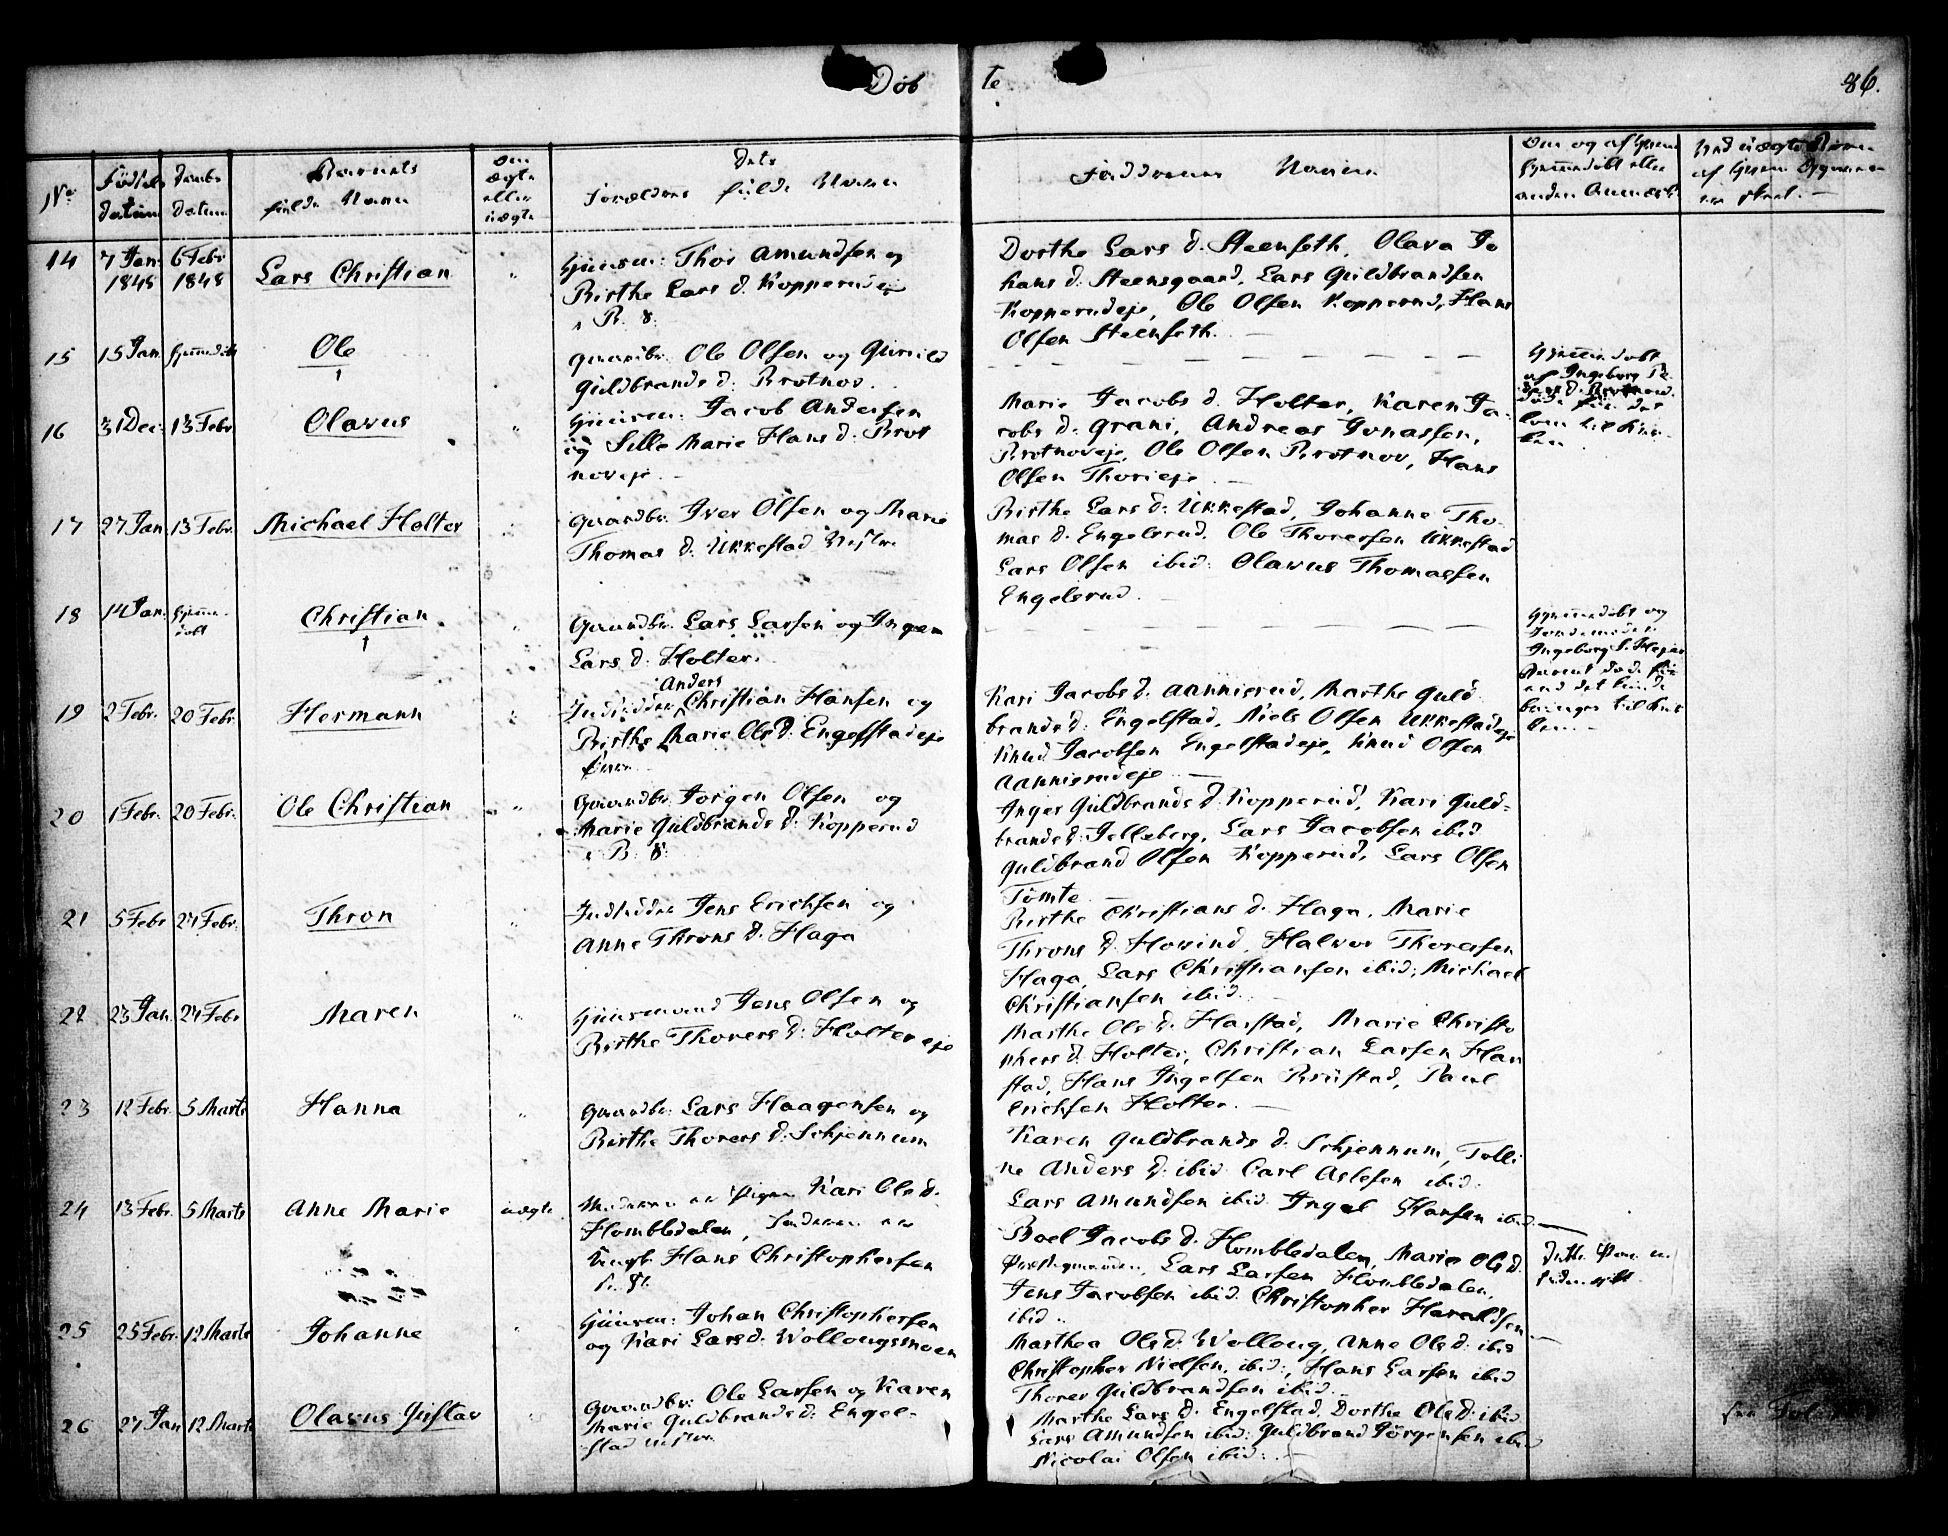 Døb te 86.
No Fødsels datum Daabs datum Barnets fulde Navn Om ægte eller uægte Dets Forældres fulde Navn Faddernes Navne
14 7 Jan. 1848 6 Febr 1848 Lars Christian Huusm: Thor Amundsen og
Birthe Lars d. Kopperudeje
B. 8.
Dorthe Lars d. Steenseth, Olava Jo
hans d. Steensgaard, Lars Guldbrandsen
Kopperudeje, Ole Olsen Kopperud, Hans
Olsen Steenseth. —
15 15 Jan Ole Gaardbr. Ole Olsen og Gunild
Guldbrands d: Brotnov.
— — — — — — —
af Ingeborg
16 31 Dec: 13 Febr. Olavus Huusm: Jacob Andersen
og Sille Marie Hans d: Brot
noveje. —
Marie Jacobs d. Holter, Karen Ja-
cobs d: Grani, Andreas Jonassen,
Brotnoveje, Ole Olsen Brotnov, Hans
Olsen Thorieje —
17 27 Jan 13 Febr. Michael Holter Gaardbr. Iver Olsen og Marie
Thomas d. Ukkestad Vestre
Birthe Lars d: Ukkestad, Johanne Tho-
mas d. Engelsrud, Ole Thoresen Ukkestad
Lars Olsen ibid: Olavus Thomassen
Engelsrud. —
18 14 Jan. Christian Gaardbr. Lars Larsen og Ingen
Lars d: Holter.
— — — — — —
Ingeborg
19 2 Febr. 20 Febr. Hermann Anders
Christian Hansen og
Birthe Marie Ols d: Engelstadeje
Kari Jacobs d. Aannerud, Marthe Guld
brands d: Engelstad, Niels Olsen Ukkestadeje
Knud Jacobsen Engelstadeje, Knud Olsen
Aannerudeje —
20 1 Febr. 20 Febr. Ole Christian Gaardbr. Jørgen Olsen og
Marie Guldbrands d: Kopperud
B. 8.
Inger Guldbrands d: Kopperud, Kari Guld-
brands d: Lars Jacobsen ibid
Guldbrand Olsen Kopperud, Lars Olsen
Tømte —
21 5 Febr 27 Febr. Thron Jens Erichsen og
Anne Throns d: Haga
Birthe Christians d. Haga, Marie
Throns d. Hovind, Halvor Thoresen
Haga, Lars Christiansen ibid; Michael
Christiansen ibid. —
22 23 Jan. 27 Febr Maren Huusmand Jens Olsen og
Birthe Thorers d: Holtereje
Marthe Ols d: Harstad, Marie Christo
phers d: Holter, Christian Larsen Har
stad, Hans Ingelsen Brustad, Paul
Erichsen Holter. —
23 12 Febr. 5 Marts Hanna Gaardbr: Lars Haagensen og
Birthe Thorers d: Schjennum
Karen Guldbrands d: Schjennum, Tolli
ne Anders d: ibid Carl Aslesen ibid.
Lars Amundsen ibid. Ingel Hansen ibid. —
24 13 Febr. 5 Marts Anne Marie uægte Moderen er Pigen Kari Ols d.
Hombledalen, Faderen er
Ungk. Hans Christophersen
Boel Jacobs d: Hombledalen, Marie Ols d.
Lars Larsen Hombledalen,
Jens Jacobsen ibid. Christopher Haraldsen
ibid. —
25 25 Febr. 12 Marts Johanne Huusm: Johan Christophersen
og Kari Lars d: Wollougsmoen
Marthea Ols d: Wolloug, Anne Ols d: ibid
Christopher Nielsen ibid; Hans Larsen ibid
Thorer Guldbrandsen ibid. —
26 27 Jan 12 Marts Olavus Gustav Gaardbr: Ole Larsen og Karen
Marie Guldbrands d: Engel-
stad Vestre
Marthe Lars d: Engelstad, Dorthe Ols d: ibid
Lars Amundsen ibid: Guldbrand Jörgensen ibid
Nicolai Olsen ibid: —